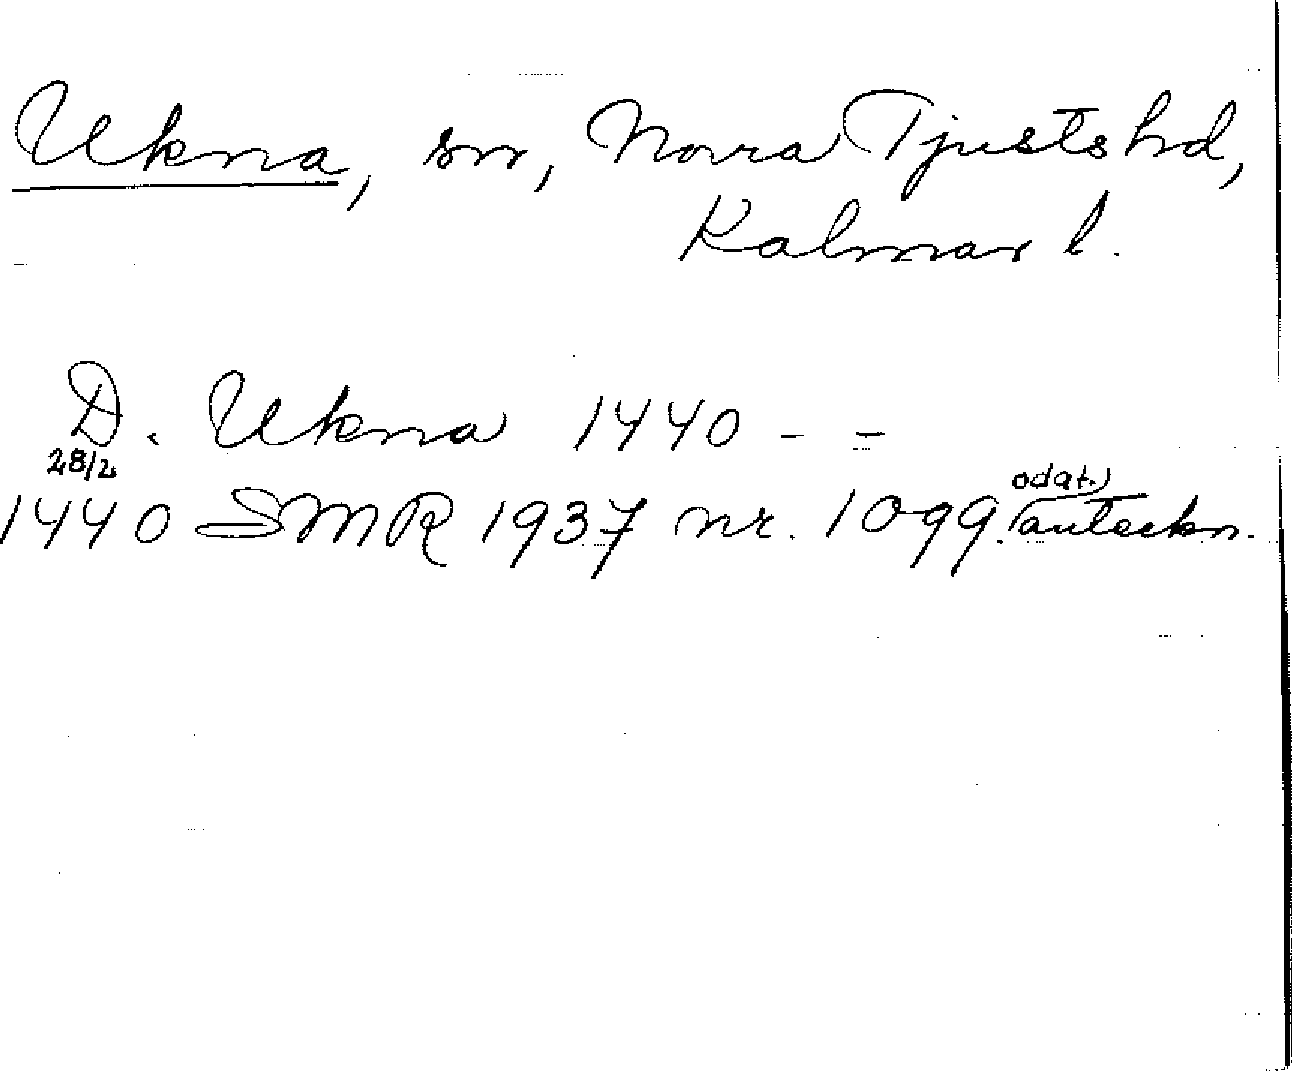 Ukna, sn, Norra Tjusts hd,
Kalmar l.
D. Ukna 1440 - -
28/2
odat.
1440 SMR 1937 nr. 1099. anteckn.